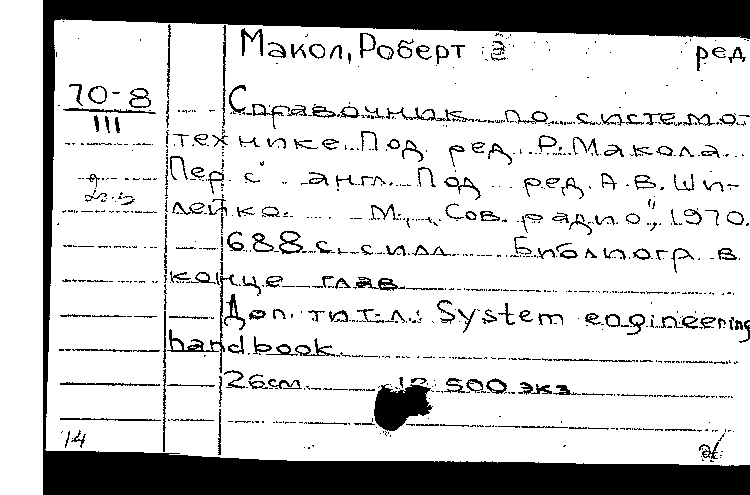 Макол, Роберт ред
70-8
III
Справочник по системо-
технике. Под ред. Р. Макола.
Пер. с англ. Под ред. А.В. Ши-
лейко. М., "Сов. радио", 1970.
688 с. с илл. Библиогр. в
конце глав
Доп. тит. л.: System engineering
handbook.
26см. 12 500 экз
14